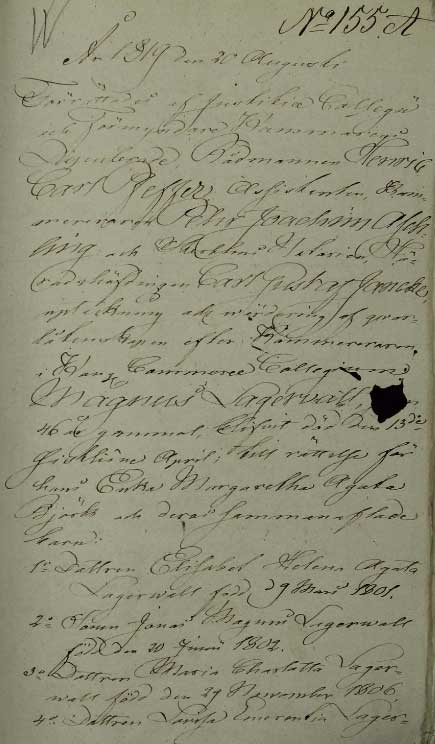 No 155. A
År 1819 den 20 Augusti
Förrättades af Justitiæ Collegii
och Förmyndare Kammarens
Rådmannen Henric
Carl Peffer, Assistenten, Kam-
mereraren Pehr Joachim Asch-
ling och Notarien, Hä-
radshöfdingen Carl Gustaf
upteckning och wärdering af qwar-
låtenskapen efter Kammereraren
i Kongl Commerce Collegium
Magnus Lagerwall,
46 år gammal, blifwit död den 13de
sistlidne April; till rättelse för
hans Enka Margaretha Agata
Björk och deras sammanaflade
barn:
1o Dottren Elisabet Helena Agata
Lagerwall född d 9 Mars 1801.
2o Sonen Jonas Magnus Lagerwall
född den 20 Junii 1802.
3o Dottren Maria Charlotta Lager-
wall född den 29 November 1806
4o Dottren Lovisa Emerentia Lager-